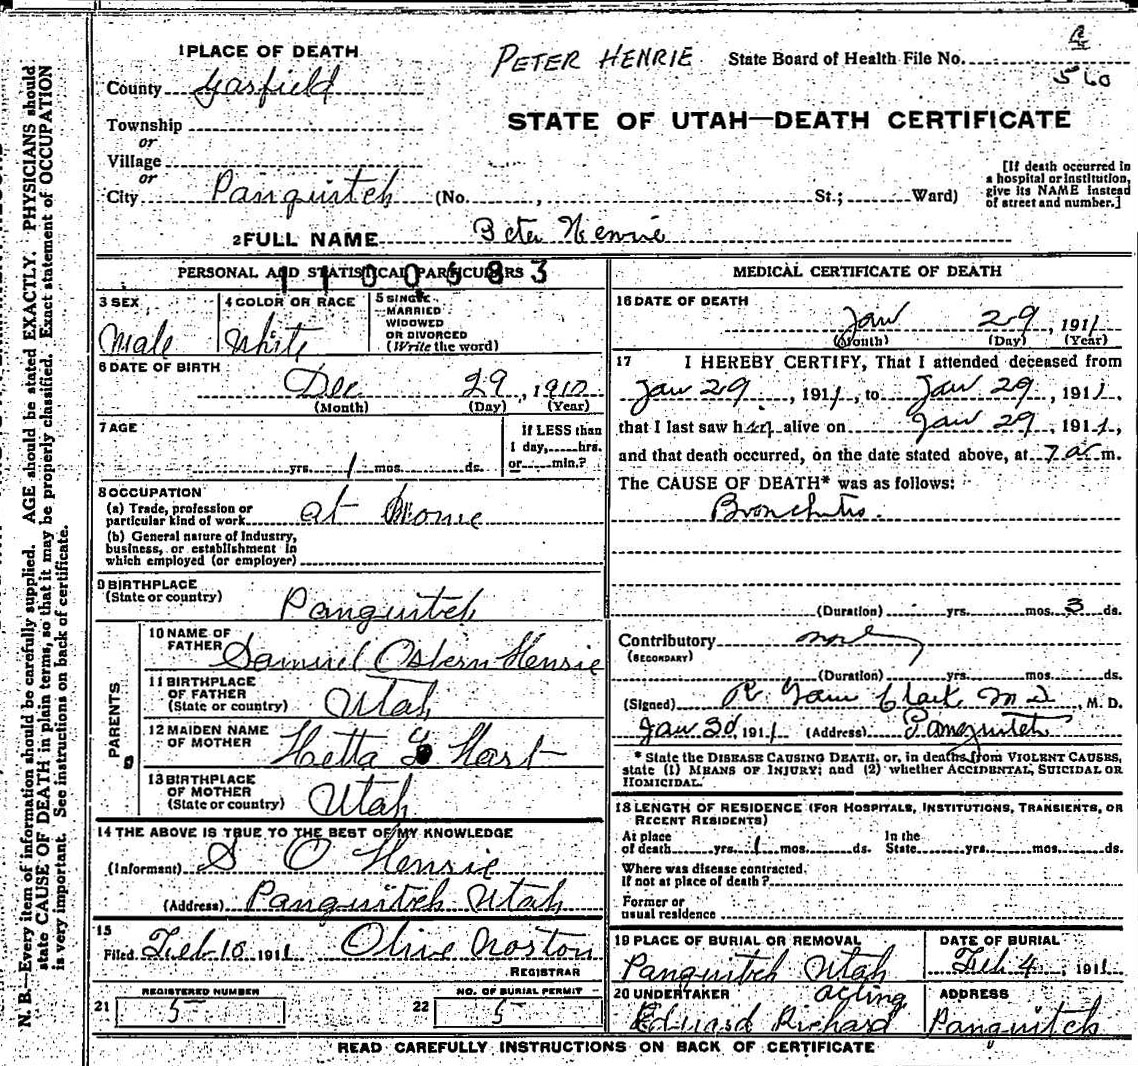 PETER HENRIE
State Board of Health File No.
560
1 PLACE OF DEATH
County Garfield
STATE OF UTAH—DEATH CERTIFICATE
Township
or
Village
or
City Panguitch (No. , St.; Ward)
[If death occurred in
a hospital or institution,
give its NAME instead
of street and number.]
2 FULL NAME Peter Henrie
PERSONAL AND STATISTICAL PARTICULARS
1100583
3 SEX
Male
4 COLOR OR RACE
White
5 SINGLE
MARRIED
WIDOWED
OR DIVORCED
(Write the word)
6 DATE OF BIRTH
Dec 29, 1910
(Month) (Day) (Year)
7 AGE
yrs. 1 mos. ds.
if LESS than
1 day, hrs.
or min.?
8 OCCUPATION
(a) Trade, profession or
particular kind of work at Home
(b) General nature of Industry,
business, or establishment in
which employed (or employer)
9 BIRTHPLACE
(State or country) Panguitch
PARENTS
10 NAME OF
FATHER Samuel Osborn Henrie
11 BIRTHPLACE
OF FATHER
(State or country) Utah
12 MAIDEN NAME
OF MOTHER Hetta Hart
13 BIRTHPLACE
OF MOTHER
(State or country) Utah
14 THE ABOVE IS TRUE TO THE BEST OF MY KNOWLEDGE
(Informant) S O Henrie
(Address) Panguitch Utah
15
Filed Feb 10 1911 Olive Norton
REGISTRAR
21 REGISTERED NUMBER
5
22 NO. OF BURIAL PERMIT
5
MEDICAL CERTIFICATE OF DEATH
16 DATE OF DEATH
Jan 29, 1911
(Month) (Day) (Year)
17 I HEREBY CERTIFY, That I attended deceased from
Jan 29, 1911, to Jan 29, 1911,
that I last saw him alive on Jan 29, 1911,
and that death occurred, on the date stated above, at 7 a. m.
The CAUSE OF DEATH* was as follows:
Bronchitis.
(Duration) yrs. mos. 3 ds.
Contributory none
(SECONDARY)
(Duration) yrs. mos. ds.
(Signed) R. Garn Clark M D, M. D.
Jan 30, 1911 (Address) Panguitch
* State the DISEASE CAUSING DEATH, or, in deaths from VIOLENT CAUSES,
state (1) MEANS OF INJURY; and (2) whether ACCIDENTAL, SUICIDAL OR
HOMICIDAL.
18 LENGTH OF RESIDENCE (FOR HOSPITALS, INSTITUTIONS, TRANSIENTS, OR
RECENT RESIDENTS)
At place
of death yrs. 1 mos. ds.
In the
State yrs. mos. ds.
Where was disease contracted,
if not at place of death?
Former or
usual residence
19 PLACE OF BURIAL OR REMOVAL
Panguitch Utah
DATE OF BURIAL
Feb 4, 1911
20 UNDERTAKER acting
Edward Richard
ADDRESS
Panguitch
READ CAREFULLY INSTRUCTIONS ON BACK OF CERTIFICATE
N. B.—Every item of information should be carefully supplied. AGE should be stated EXACTLY. PHYSICIANS should
state CAUSE OF DEATH in plain terms, so that it may be properly classified. Exact statement of OCCUPATION
is very important. See instructions on back of certificate.